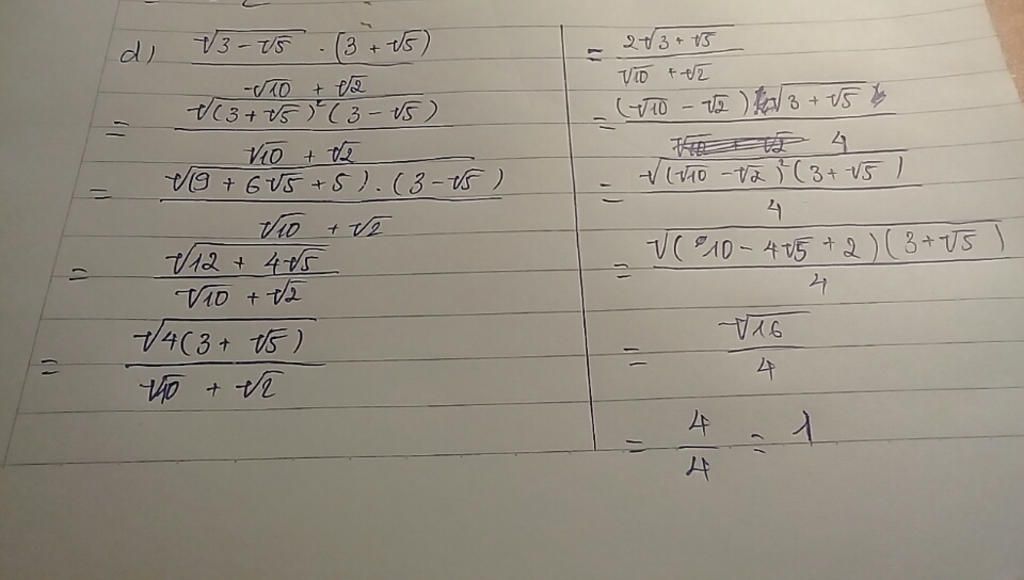 d) √(3 - √5) . (3 + √5) / (√10 + √2)
= √((3 + √5)² (3 - √5)) / (√10 + √2)
= √((9 + 6√5 + 5) . (3 - √5)) / (√10 + √2)
= √(12 + 4√5) / (√10 + √2)
= √(4(3 + √5)) / (√10 + √2)
= 2√(3 + √5) / (√10 + √2)
= (√10 - √2) √(3 + √5) / 4
= √((√10 - √2)² (3 + √5)) / 4
= √((10 - 4√5 + 2)(3 + √5)) / 4
= √16 / 4
= 4 / 4 = 1